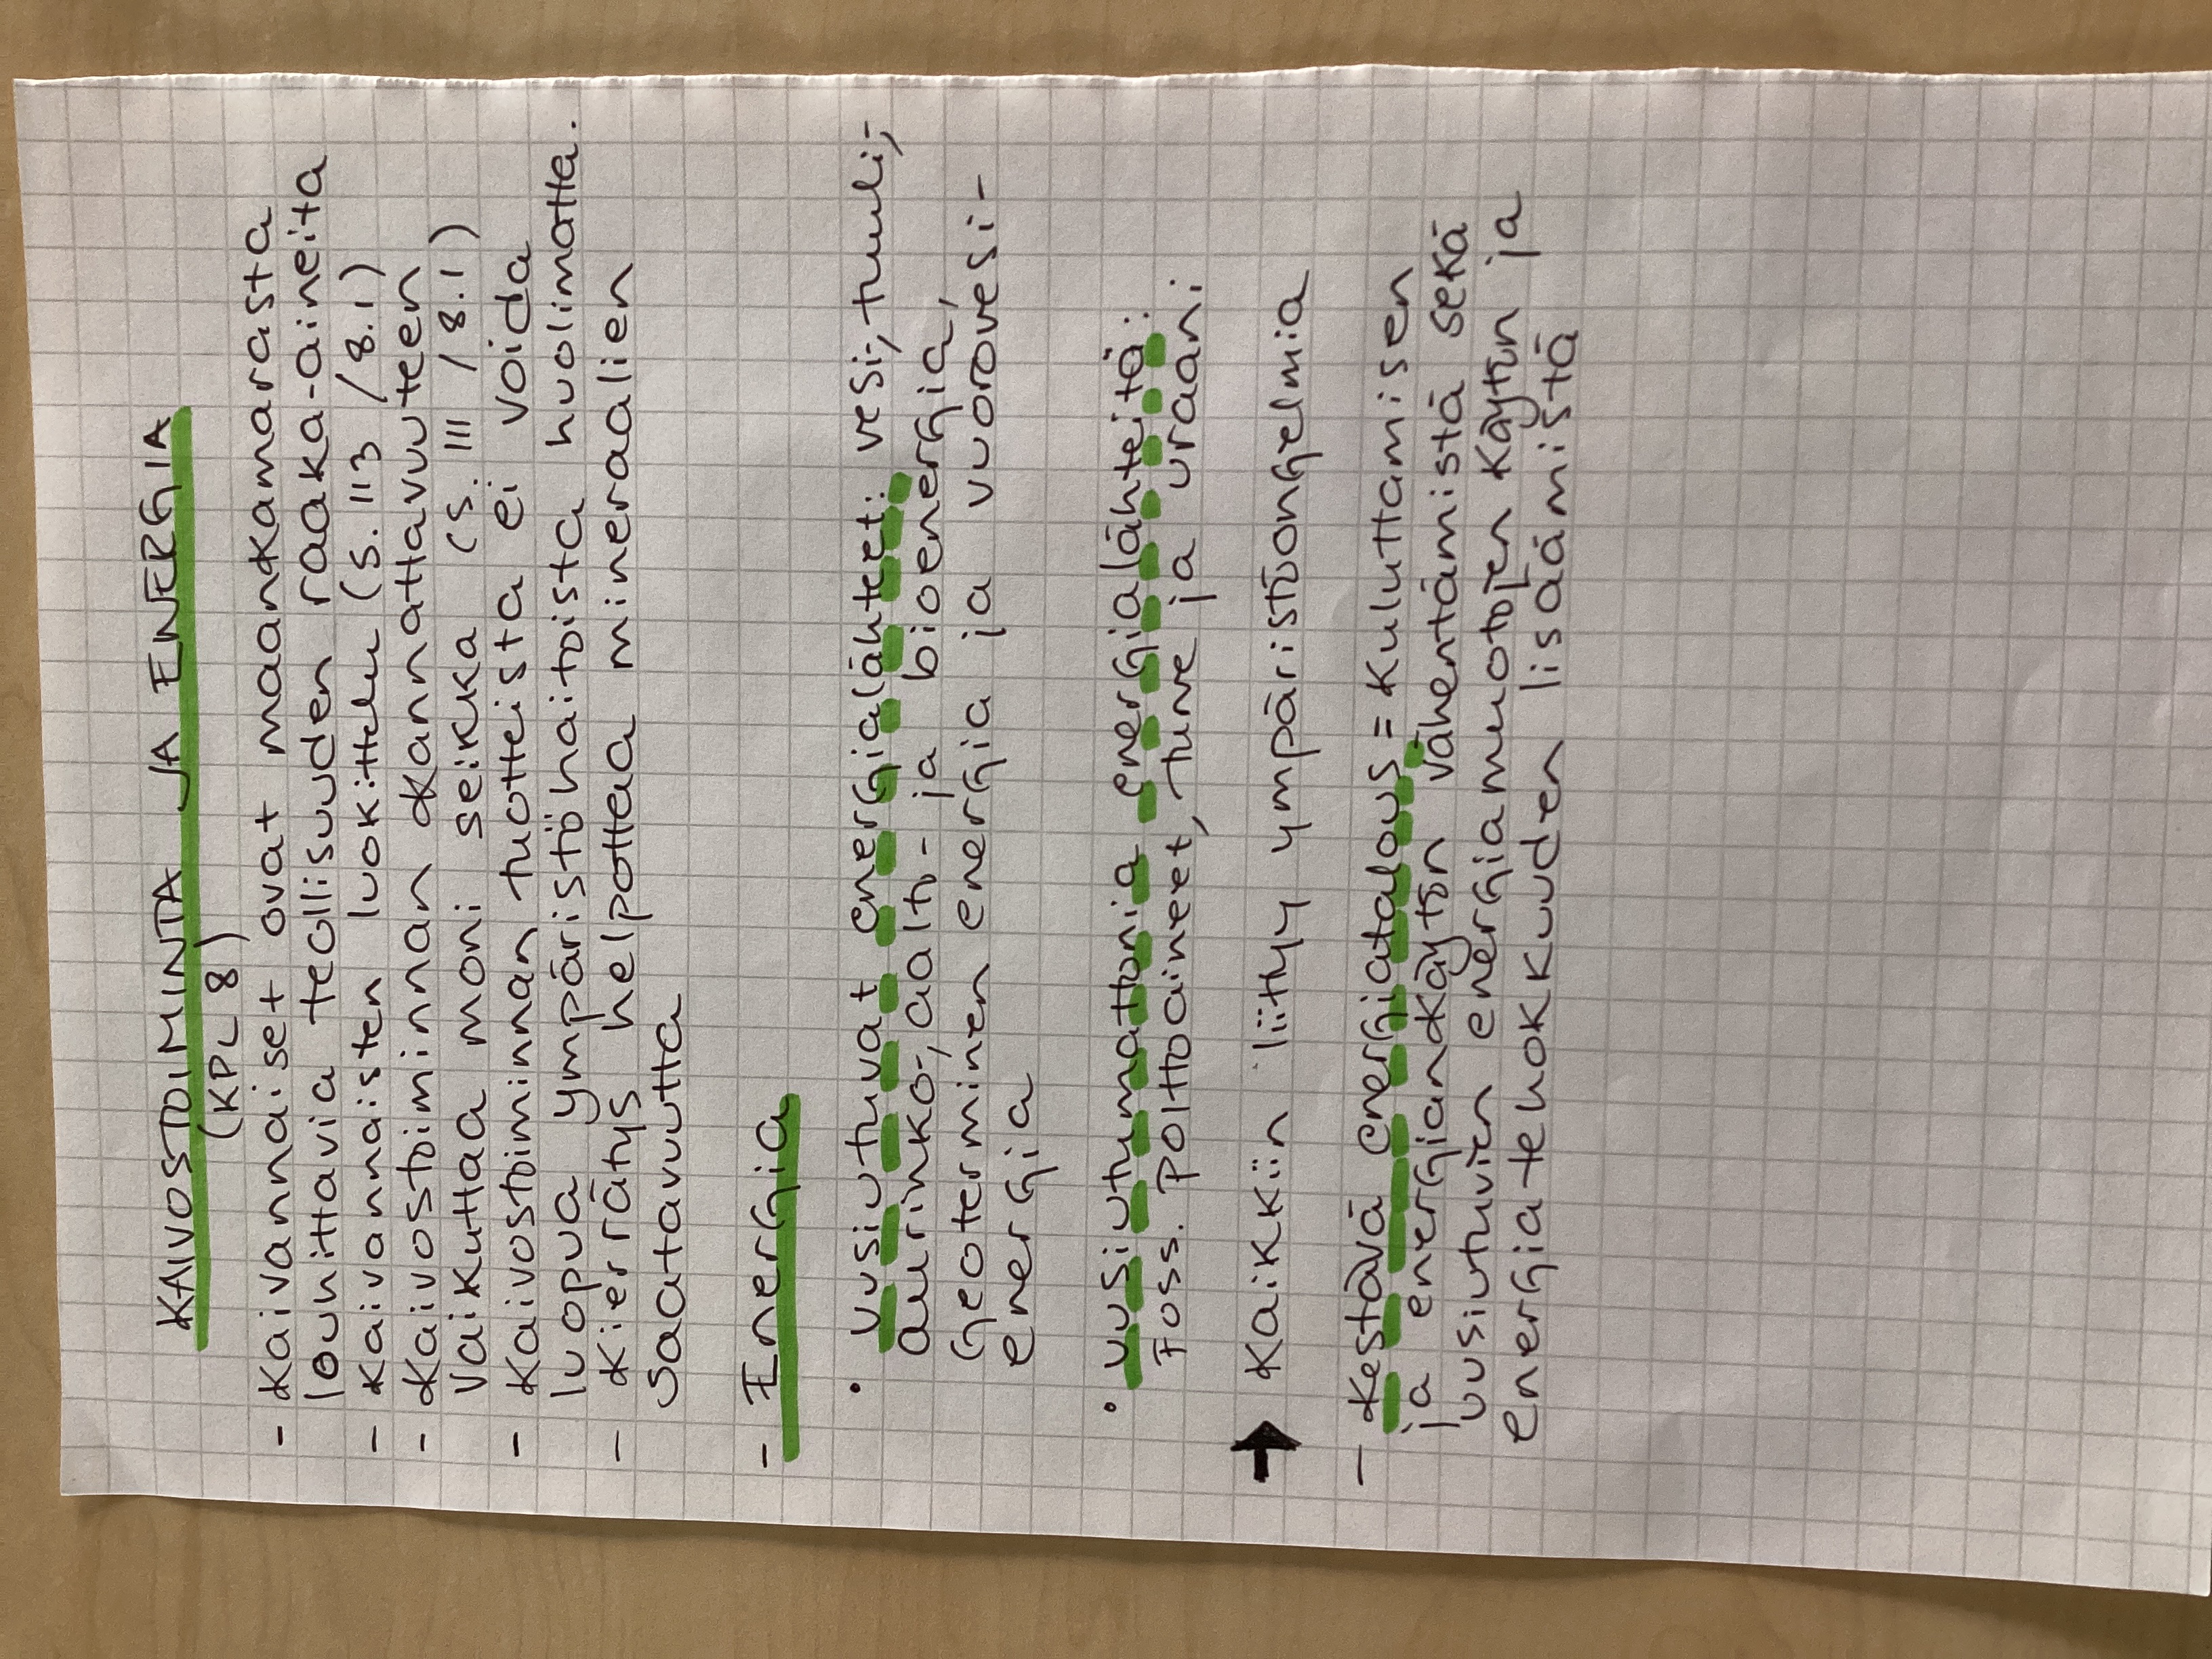 KAIVOSTOIMINTA JA ENERGIA
(KPL 8)
- Kaivannaiset ovat maankamarasta
louhittavia teollisuuden raaka-aineita
- Kaivannaisten luokittelu (s. 113 / 8.1)
- Kaivostoiminnan kannattavuuteen
vaikuttaa moni seikka (s. 111 / 8.1)
- Kaivostoiminnan tuotteista ei voida
luopua ympäristöhaitoista huolimatta.
- Kierrätys helpottaa mineraalien
saatavuutta
- Energia
• uusiutuvat energialähteet: vesi-, tuuli-,
aurinko-, aalto- ja bioenergia,
geoterminen energia ja vuorovesi-
energia
• uusiutumattomia energialähteitä:
Foss. polttoaineet, turve ja uraani
→ Kaikkiin liittyy ympäristöongelmia
- Kestävä energiatalous = Kuluttamisen
ja energiankäytön vähentämistä sekä
uusiutuvien energiamuotojen käytön ja
energiatehokkuuden lisäämistä